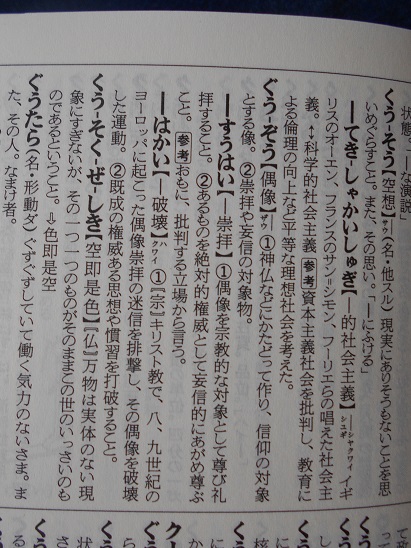 状態。「―な演説」
くう‐そう【空想】サウ(名・他スル)現実にありそうもないことを思
いめぐらすこと。また、その思い。「―にふける」
―てき‐しゃかいしゅぎ【―的社会主義】―シャクワイシュギ イギ
リスのオーエン、フランスのサン=シモン、フーリエらの唱えた社会主
義。↔科学的社会主義 参考 資本主義社会を批判し、教育に
よる倫理の向上など平等な理想社会を考えた。
ぐう‐ぞう【偶像】ザウ ①神仏などにかたどって作り、信仰の対象
とする像。②崇拝や妄信の対象物。
―すうはい【―崇拝】①偶像を宗教的な対象として尊び礼
拝すること。②あるものを絶対的権威として妄信的にあがめ尊ぶ
こと。参考 おもに、批判する立場から言う。
―はかい【―破壊】―クワイ ①『宗』キリスト教で、八、九世紀の
ヨーロッパに起こった偶像崇拝の迷信を排撃し、その偶像を破壊
した運動。②既成の権威ある思想や慣習を打破すること。
くう‐そく‐ぜ‐しき【空即是色】『仏』万物は実体のない現
象にすぎないが、その一つ一つのものがそのままこの世のいっさいのも
のであるということ。⇩色即是空
ぐうたら(名・形動ダ)ぐずぐずしていて働く気力のないさま。ま
た、その人。なまけ者。